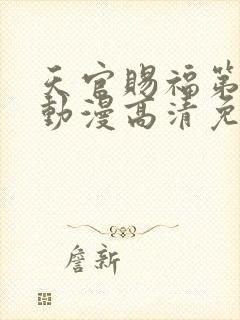 天官賜福第
動漫高清免
詹新